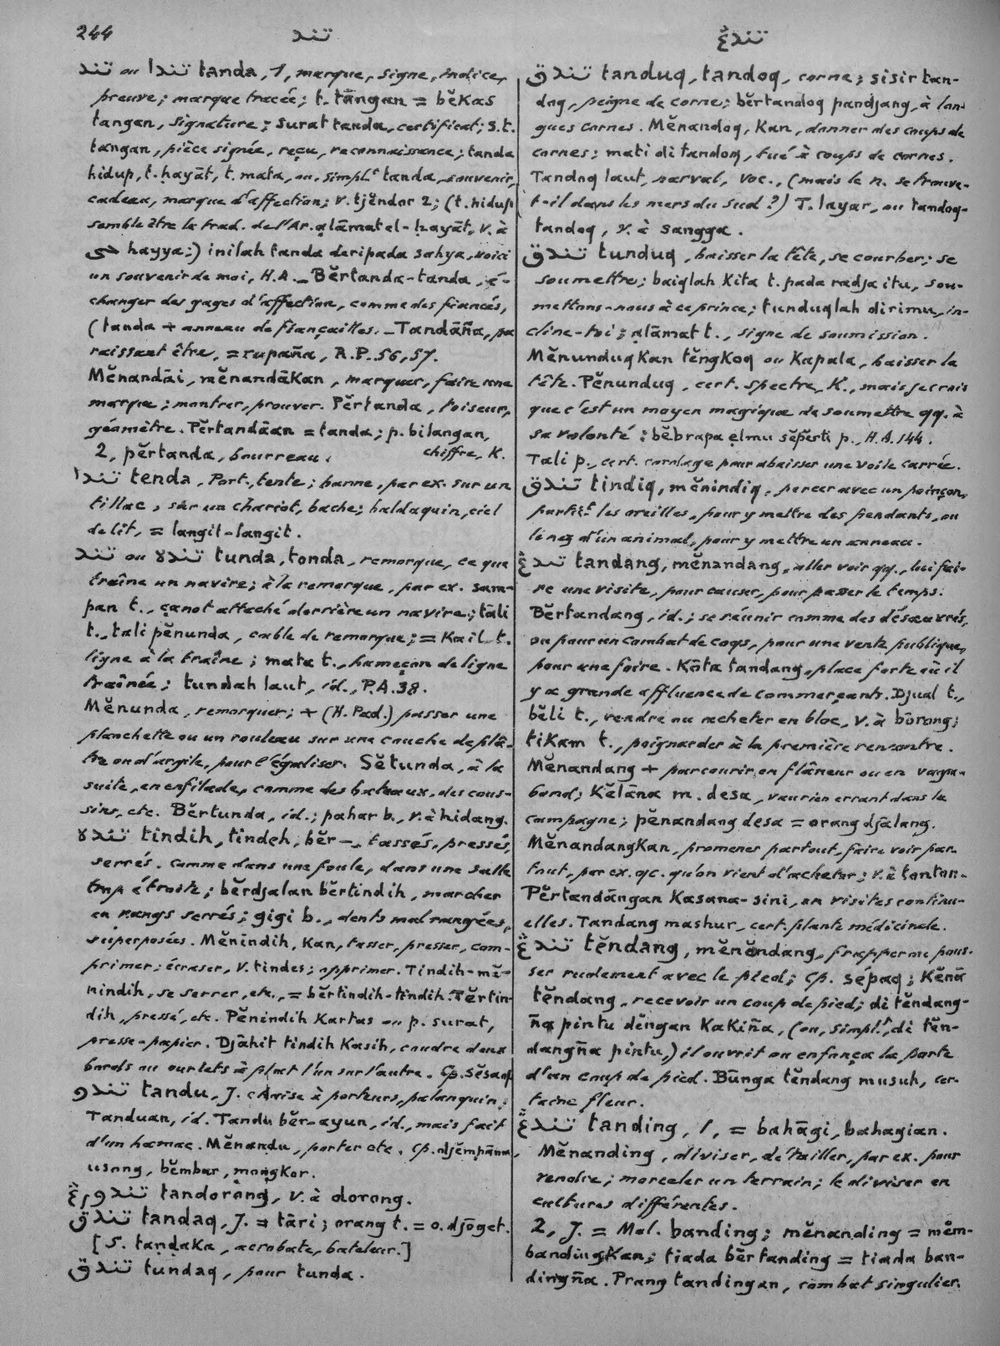 244 تند تندڠ
تند ou تندا tanda, 1, marque, signe, indice,
preuve; marque tracée; t. tāngan = bĕkas
tangan, signature; surat tanda, certificat; s.t.
tangan, pièce signée, reçu, reconnaissance; tanda
hidup, t. hayāt, t. mata, ou, simplt tanda, souvenir,
cadeau, marque d'affection; v. tjĕndor 2; (t. hidup
semble être la trad. de l'Ar. alāmat el-hayāt, v. à
حي hayya:) inilah tanda deripada sahya, voici
un souvenir de moi, H.A. _ Bĕrtanda-tanda, é-
changer des gages d'affection, comme des fiancés,
(tanda + anneau de fiançailles. _ Tandāña, pa
raissant être, = rupaña, R.P. 56, 57.
Mĕnandāi, mĕnandākan, marquer, faire une
marque; montrer, prouver. Pĕrtanda, toiseur,
géomètre. Pĕrtandāan = tanda; p. bilangan,
2, pĕrtanda, bourreau. chiffre, K.
تندا tenda, Port., tente; banne, par ex. sur un
tillac, sur un chariot, bache; baldaquin, ciel
de lit, = langit-langit.
تند ou تنده tunda, tonda, remorque, ce que
traîne un navire; à la remorque, par ex. sam-
pan t., canot attaché derrière un navire; tāli
t., tali pĕnunda, cable de remorque; = Kail t.
ligne à la traîne; mata t., hameçon de ligne
traînée; tundah laut, id., P.A. 38.
Mĕnunda, remorquer; + (H. Pad.) passer une
planchette ou un rouleau sur une couche de plâ-
tre ou d'argile, pour l'égaliser. Sĕtunda, à la
suite, en enfilade, comme des bateaux, des cous-
sins, etc. Bĕrtunda, id.; pahar b., v. à hidang.
تنده tindih, tindeh, bĕr-, tassés, pressés,
serrés. comme dans une foule, dans une salle
trop étroite; bĕrdjalan bĕrtindih, marcher
en rangs serrés; gigi b., dents mal rangées,
superposées. Mĕnindih, Kan, tasser, presser, com-
primer; écraser, v. tindes; opprimer. Tindih-mĕ-
nindih, se serrer, etc., = bĕrtindih-tindih. Tĕrtin-
dih, pressé, etc. Pĕnindih Kartas ou p. surat,
presse-papier. Djāhit tindih Kasih, coudre deux
bords ou ourlets à plat l'un sur l'autre. Cp. sĕsaq
تندو tandu, J. chaise à porteurs, palanquin;
Tanduan, id. Tandu bĕr-ayun, id., mais fait
d'un hamac. Mĕnandu, porter etc. Cp. djĕmpāna,
usong, bĕmbar, mongkor.
تندورڠ tandorāng, v. à dorong.
تندق tandaq, J. = tāri; orang t. = o. djōget.
[S. taṇḍaka, acrobate, bateleur.]
تندق tundaq, pour tunda.
تندق tanduq, tandoq, corne; sisir tan-
doq, peigne de corne; bĕrtandoq pandjang, à lon-
gues cornes. Mĕnandoq, Kan, donner des coups de
cornes; mati di tandoq, tué à coups de cornes.
Tandoq laut, narval, voc., (mais le n. se trouve-
t-il dans les mers du sud?) T. layar, ou tandoq-
tandoq, v. à sangga.
تندق tunduq, baisser la tête, se courber; se
soumettre; baiqlah kita t. pada radja itu, sou-
mettons-nous à ce prince; tunduqlah dirimu, in-
cline-toi; alāmat t., signe de soumission.
MĕnunduqKan tĕngkoq ou Kapala, baisser la
tête. Pĕnunduq, cert. spectre, K., mais je crois
que c'est un moyen magique de soumettre qq. à
sa volonté; bĕbrapa elmu sĕpĕsti p., H.A. 144.
Tali p., cert. cordage pour abaisser une voile carrée.
تندق tindiq, mĕnindiq, percer avec un poinçon,
particlt les oreilles, pour y mettre des pendants, ou
le nez d'un animal, pour y mettre un anneau.
تندڠ tandang, mĕnandang, aller voir qq., lui fai-
re une visite, pour causer, pour passer le temps.
Bĕrtandang, id.; se réunir comme des désœuvrés,
ou pour un combat de coqs, pour une vente publique,
pour une foire. Kōta tandang, place forte où il
y a grande affluence de commerçants. Djual t.,
bĕli t., vendre ou acheter en bloc, v. à bōrong;
tikam t., poignarder à la première rencontre.
Mĕnandang + parcourir en flâneur ou en vaga-
bond; Kĕlāna m. desa, vaurien errant dans la
campagne; pĕnandang desa = orang djalang.
MĕnandangKan, promener partout, faire voir par-
tout, par ex. qc. qu'on vient d'acheter; v. à tonton.
Pĕrtandāngan Kasana-sini, en visites continu-
elles. Tandang mashur, cert. plante médicinale.
تندڠ tĕndang, mĕnĕndang, frapper ou pous-
ser rudement avec le pied; Cp. sépaq; Kĕnā
tĕndang, recevoir un coup de pied; di tĕndang-
ña pintu dĕngan Kakiña, (ou, simplt, di tĕn-
dangña pintu,) il ouvrit ou enfonça la porte
d'un coup de pied. Būnga tĕndang musuh, cer-
taine fleur.
تندڠ tanding, 1, = bahāgi, bahagian.
Mĕnanding, diviser, détailler, par ex. pour
vendre; morceler un terrain; le diviser en
cultures différentes.
2, J. = Mal. banding; mĕnanding = mĕm-
bandingKan; tiada bĕrtanding = tiada ban-
dingña. Prang tandingan, combat singulier.